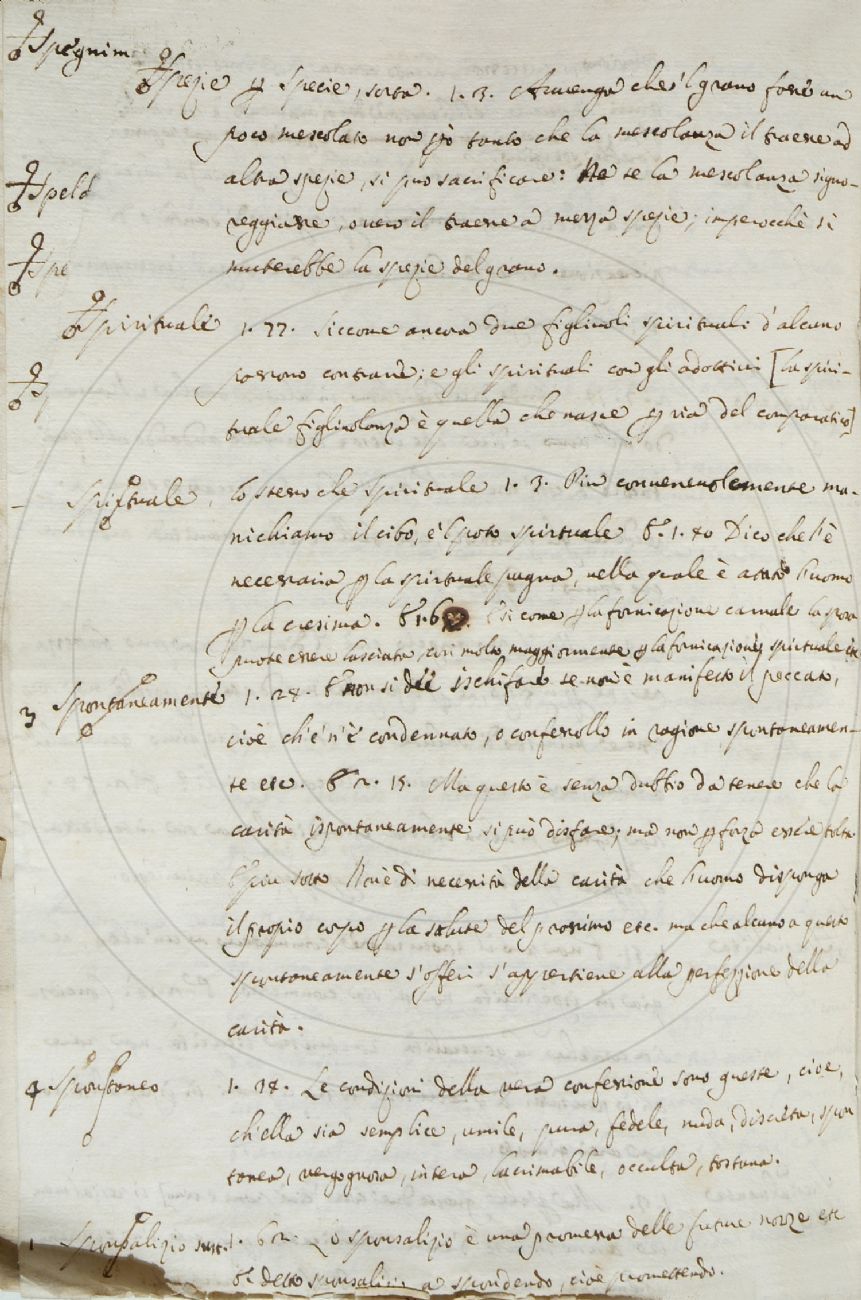 Spegnim
Spezie p Specie, sorta. 1. 3. Avvenga che s'l grano fosse un
poco mescolato non però tanto che la mescolanza il traesse ad
altra spezie, si può sacrificare: Ma se la mescolanza signo-
Speld
reggiasse, o vero il traesse a mezza spezie; imperocchè si
Spe
muterebbe la spezie del grano.
Spirituale 1. 77. Siccome ancora due figliuoli spirituali d'alcuno
possono contrarre; e gli spirituali con gli adottivi [la spiri-
tuale figliuolanza è quella che nasce p via del comparatico]
Spirtuale, lo stesso che spirituale 1. 3. Più convenevolemente ma-
nichiamo il cibo, e'l poto spirtuale E. 1. 40 Dico che l'è
necessaria p la spirtuale pugna, nella quale è l'uomo
p la cresima. E 1. 6 come p la fornicazione carnale la
puote essere lasciata, così molto maggiormente p la fornicazione spirtuale
3 Spontaneamente 1. 24. E non si dee ischifare se non è manifesto il peccato,
cioè ch'e' n'è condennato, o confessollo in ragione spontaneamen-
te etc. E 2. 15. Ma questo è senza dubbio da tenere che la
carità ispontaneamente si può disfare; ma non p forza essere tolta
E più sotto Non è di necessità della carità che l'uomo disponga
il propio corpo p la salute del prossimo etc. ma che alcuno a questo
spontaneamente s'offeri s'appertiene alla perfezzione della
carità.
4 Spontaneo 1. 34. Le condizioni della vera confessione sono queste, cioè,
ch'ella sia semplice, umile, pura, fedele, nuda, discreta, spon
tanea, vergognosa, intera, lacrimabile, occulta, tostana.
1 Sponsalizio sust. 1. 62. Lo sponsalizio è una promessa delle future nozze etc
E detto sponsalizio a spondendo, cioè promettendo.